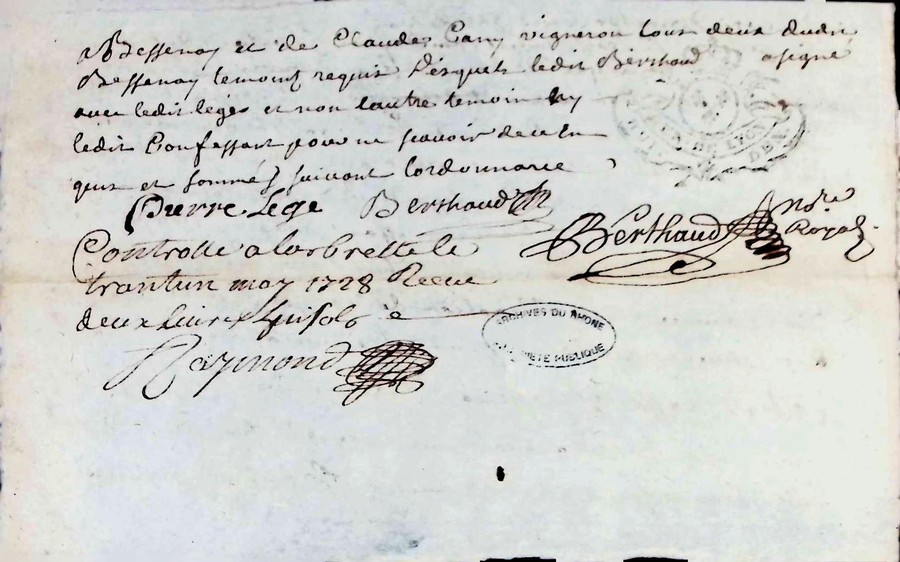 a Bessenay et de Claude Cany vigneron tous deux dudit
Bessenay temoins requis desquels ledit Berthaud a signé
avec ledit legés et non lautre temoin ny
ledit Confessant pour ne scavoir de ce en
quis et sommés suivant lordonnance
Pierre Lege Berthaud
Berthaud nore Royal
Controllé a larbrelle le
trantun may 1728 Receu
deux livres huit sols
Raymond
ARCHIVES DU RHONE
PROPRIÉTÉ PUBLIQUE
DE LYON